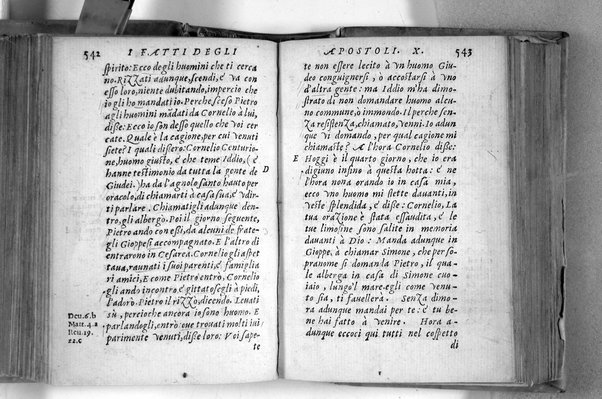 542
I FATTI DEGLI
spirito: Ecco degli huomini che ti cerca
no. Rizzati adunque, scendi, & va con
esso loro, niente dubitando, impercio che
io gli ho mandati io. Perche sceso Pietro
agli huomini mādati da Cornelio à lui,
disse: Ecco io son desso quello che voi cer
cate. Quale è la cagione, per cui venuti
siete? I quali dissero: Cornelio Centurio=
ne, huomo giusto, & che teme Iddio, (&
hanne testimonio da tutta la gente de
Giudei) ha da l'agnolo santo hauto per
oracolo, di chiamarti à casa sua, & vdir
ti parlare. Chiamatigli adunque den=
tro, gli albergò. Poi il giorno seguente,
Pietro ando con essi, da alcuni de fratẽ
gli Gioppesi accompagnato. E l'altro dì
entrarono in Cesarea. Cornelio gli aspet
taua, raunati i suoi parenti, & famiglia
ri amici, E come Pietro entrò, Cornelio
gli andò incontro, & gittatosegli à piedi,
l'adorò. Pietro il rizzò, dicendo. Leuati
sù, percioche ancora io sono huomo. E
parlandogli, entrò: oue trouati molti ini
parimente venuti, disse loro: Voi sape=
te
D
Deu. 6. b
Matt. 4. a
Reu. 19.
22. c
APOSTOLI. X.
543
te non essere lecito à vn huomo Giu=
deo congiugnersi, ò accostarsi à vno
d'altra gente: ma Iddio m'ha dimo=
strato di non domandare huomo alcu=
no commune, ò immondo. Il perche sen=
za resistenza, chiamato, venni. Io adun=
que vi domando, per qual cagione mi
chiamaste? A l'hora Cornelio disse:
E
Hoggi è il quarto giorno, che io era
digiuno insino à questa hotta: & ne
l'hora nona orando io in casa mia,
ecco vno huomo mi stette dauanti, in
veste splendida, & disse: Cornelio, La
tua orazione è stata essaudita, & le
tue limosine sono salite in memoria
dauanti à Dio: Manda adunque in
Gioppe, à chiamar Simone, che per so=
pranome si domanda Pietro, il qua
le alberga in casa di Simone cuo=
iaio, lungo'l mare. egli come venu=
to sia, ti fauellera. Senza dimo=
ra adunque mandai per te: & tu be=
ne hai fatto à venire. Hora a=
dunque eccoci qui tutti nel cospetto
di